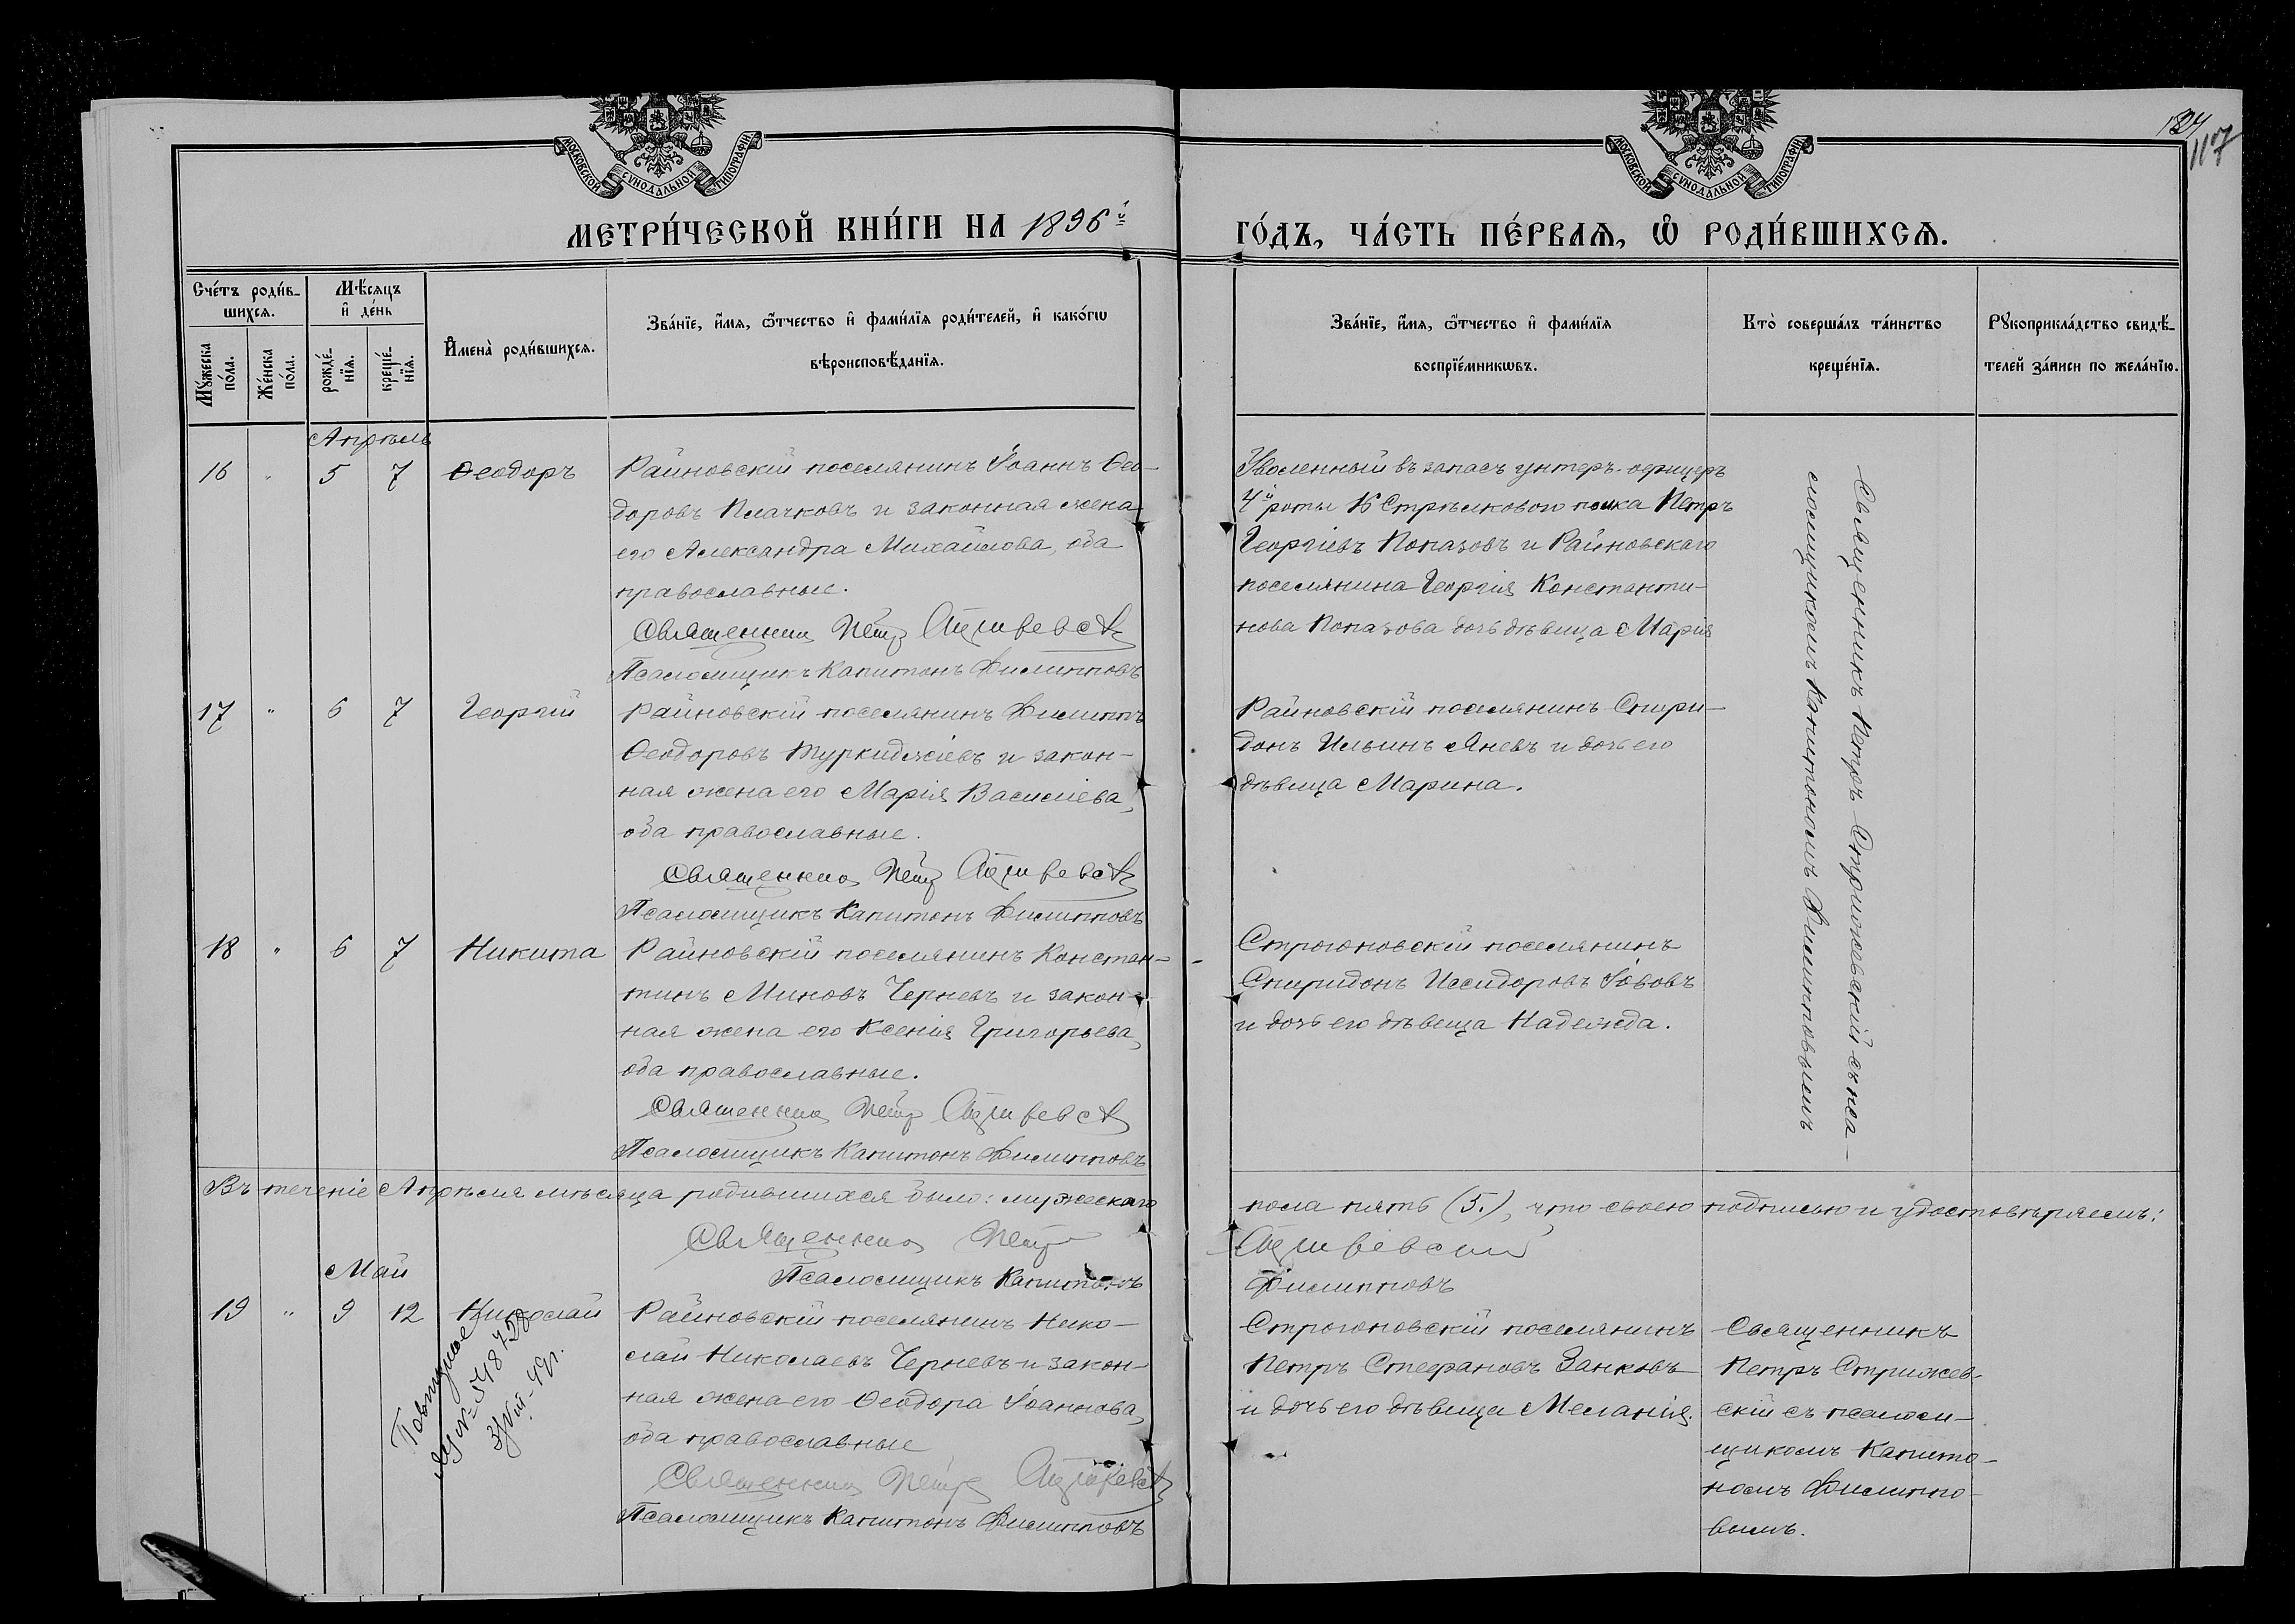 124
117
МОСКОВСКОЙ СУНОДАЛЬНОЙ ТИПОГРАФІИ
МОСКОВСКОЙ СУНОДАЛЬНОЙ ТИПОГРАФІИ
МЕТРИ́ЧЕСКОЙ КНИ́ГИ НА 1896й
ГО́ДЪ, ЧА́СТЬ ПЕ́РВАѦ, Ѡ҆ РОДИ́ВШИХСѦ.
Сче́тъ роди́в-
шихсѧ.
Мѣ́сѧцъ
и҆ де́нь
Мꙋ́жеска
по́ла.
Же́нска
по́ла.
рожде́-
нїѧ.
креще́-
нїѧ.
И҆мена̀ роди́вшихсѧ.
Зва́нїе, и҆́мѧ, ѻ҆́тчество и҆ фами́лїѧ роди́телей, и҆ како́гѡ
вѣроисповѣ́данїѧ.
Зва́нїе, и҆́мѧ, ѻ҆́тчество и҆ фами́лїѧ
воспрїе́мникѡвъ.
Кто̀ соверша́лъ та́инство
креще́нїѧ.
Рꙋкоприкла́дство свидѣ́-
телей за́писи по жела́нїю.
Апрѣль
16 " 5 7 Ѳеодоръ
Райновскій поселянинъ Іоаннъ Ѳео-
доровъ Плачковъ и законная жена
его Александра Михайлова, оба
православные.
Священник Петр Стрижевск
Псаломщикъ Капитонъ Филипповъ
Уволенный въ запасъ унтеръ-офицеръ
4й роты 16 Стрѣлковаго полка Петръ
Георгіевъ Попазовъ и Райновскаго
поселянина Георгія Константи-
нова Попазова дочь дѣвица Марія
Священникъ Петръ Стрижевскій съ пса-
ломщикомъ Капитономъ Филипповымъ
17 " 6 7 Георгій
Райновскій поселянинъ Филиппъ
Ѳеодоровъ Туркиджіевъ и закон-
ная жена его Марія Василіева,
оба православные.
Священник Петр Стрижевск
Псаломщикъ Капитонъ Филипповъ
Райновскій поселянинъ Спири-
донъ Ильинъ Яневъ и дочь его
дѣвица Марина.
18 " 6 7 Никита
Райновскій поселянинъ Констан-
тинъ Миновъ Черневъ и закон-
ная жена его Ксенія Григорьева,
оба православные.
Священник Петр Стрижевск
Псаломщикъ Капитонъ Филипповъ
Строгоновскій поселянинъ
Спиридонъ Исидоровъ Іововъ
и дочь его дѣвица Надежда.
Въ теченіе Апрѣля мѣсяца родившихся было: мужескаго
пола пять (5.), что своею подписью и удостовѣряемъ:
Священник Петр
Стрижевский
Псаломщикъ Капитонъ
Филипповъ
Май
19 " 9 12 Николай
Повторное
3/VIII-49г.
Райновскій поселянинъ Нико-
лай Николаевъ Черневъ и закон-
ная жена его Ѳеодора Іоаннова,
оба православные
Священник Петр Стрижевск
Псаломщикъ Капитонъ Филипповъ
Строгоновскій поселянинъ
Петръ Стефановъ Занковъ
и дочь его дѣвица Меланія.
Священникъ
Петръ Стрижев-
скій съ псалом-
щикомъ Капито-
номъ Филиппо-
вымъ.